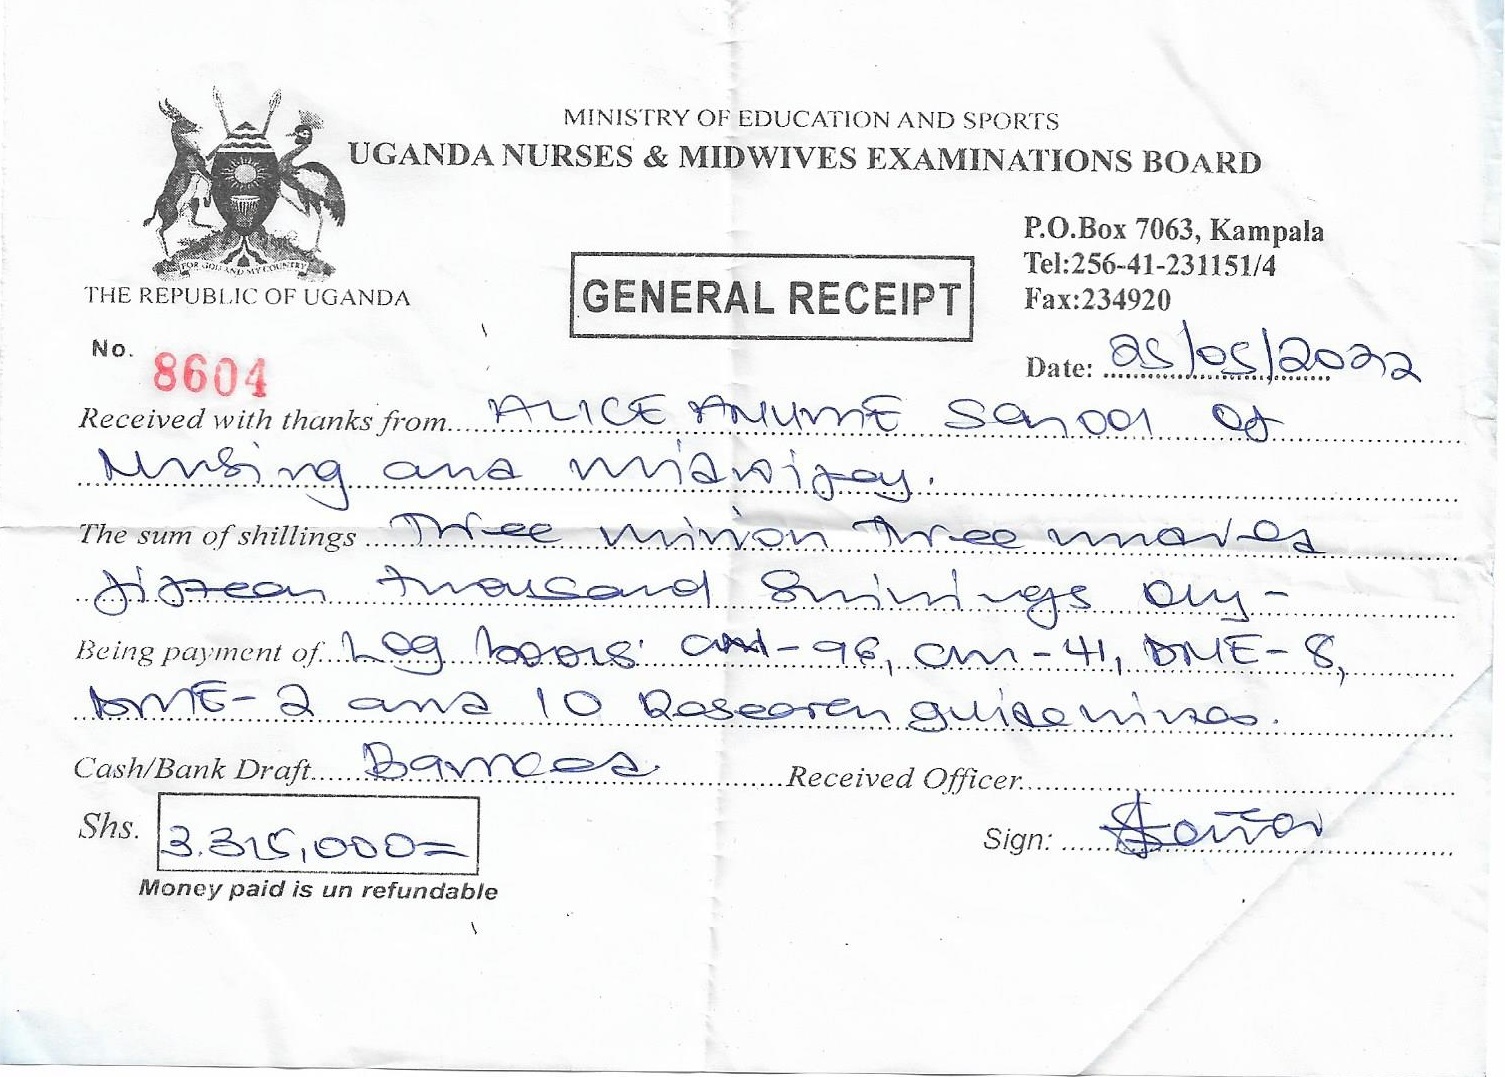 MINISTRY OF EDUCATION AND SPORTS
UGANDA NURSES & MIDWIVES EXAMINATIONS BOARD
FOR GOD AND MY COUNTRY
THE REPUBLIC OF UGANDA
P.O.Box 7063, Kampala
Tel:256-41-231151/4
Fax:234920
GENERAL RECEIPT
No. 8604
Date: 25/05/2022
Received with thanks from ALICE ANUME School of
Nursing and midwifery.
The sum of shillings Three million three hundred
fifteen thousand Shillings Only -
Being payment of Log books: - 98, cm - 41, DNE - 8,
DME - 2 and 10 Research guidelines.
Cash/Bank Draft Banked Received Officer
Shs. 3,315,000=
Sign:
Money paid is un refundable